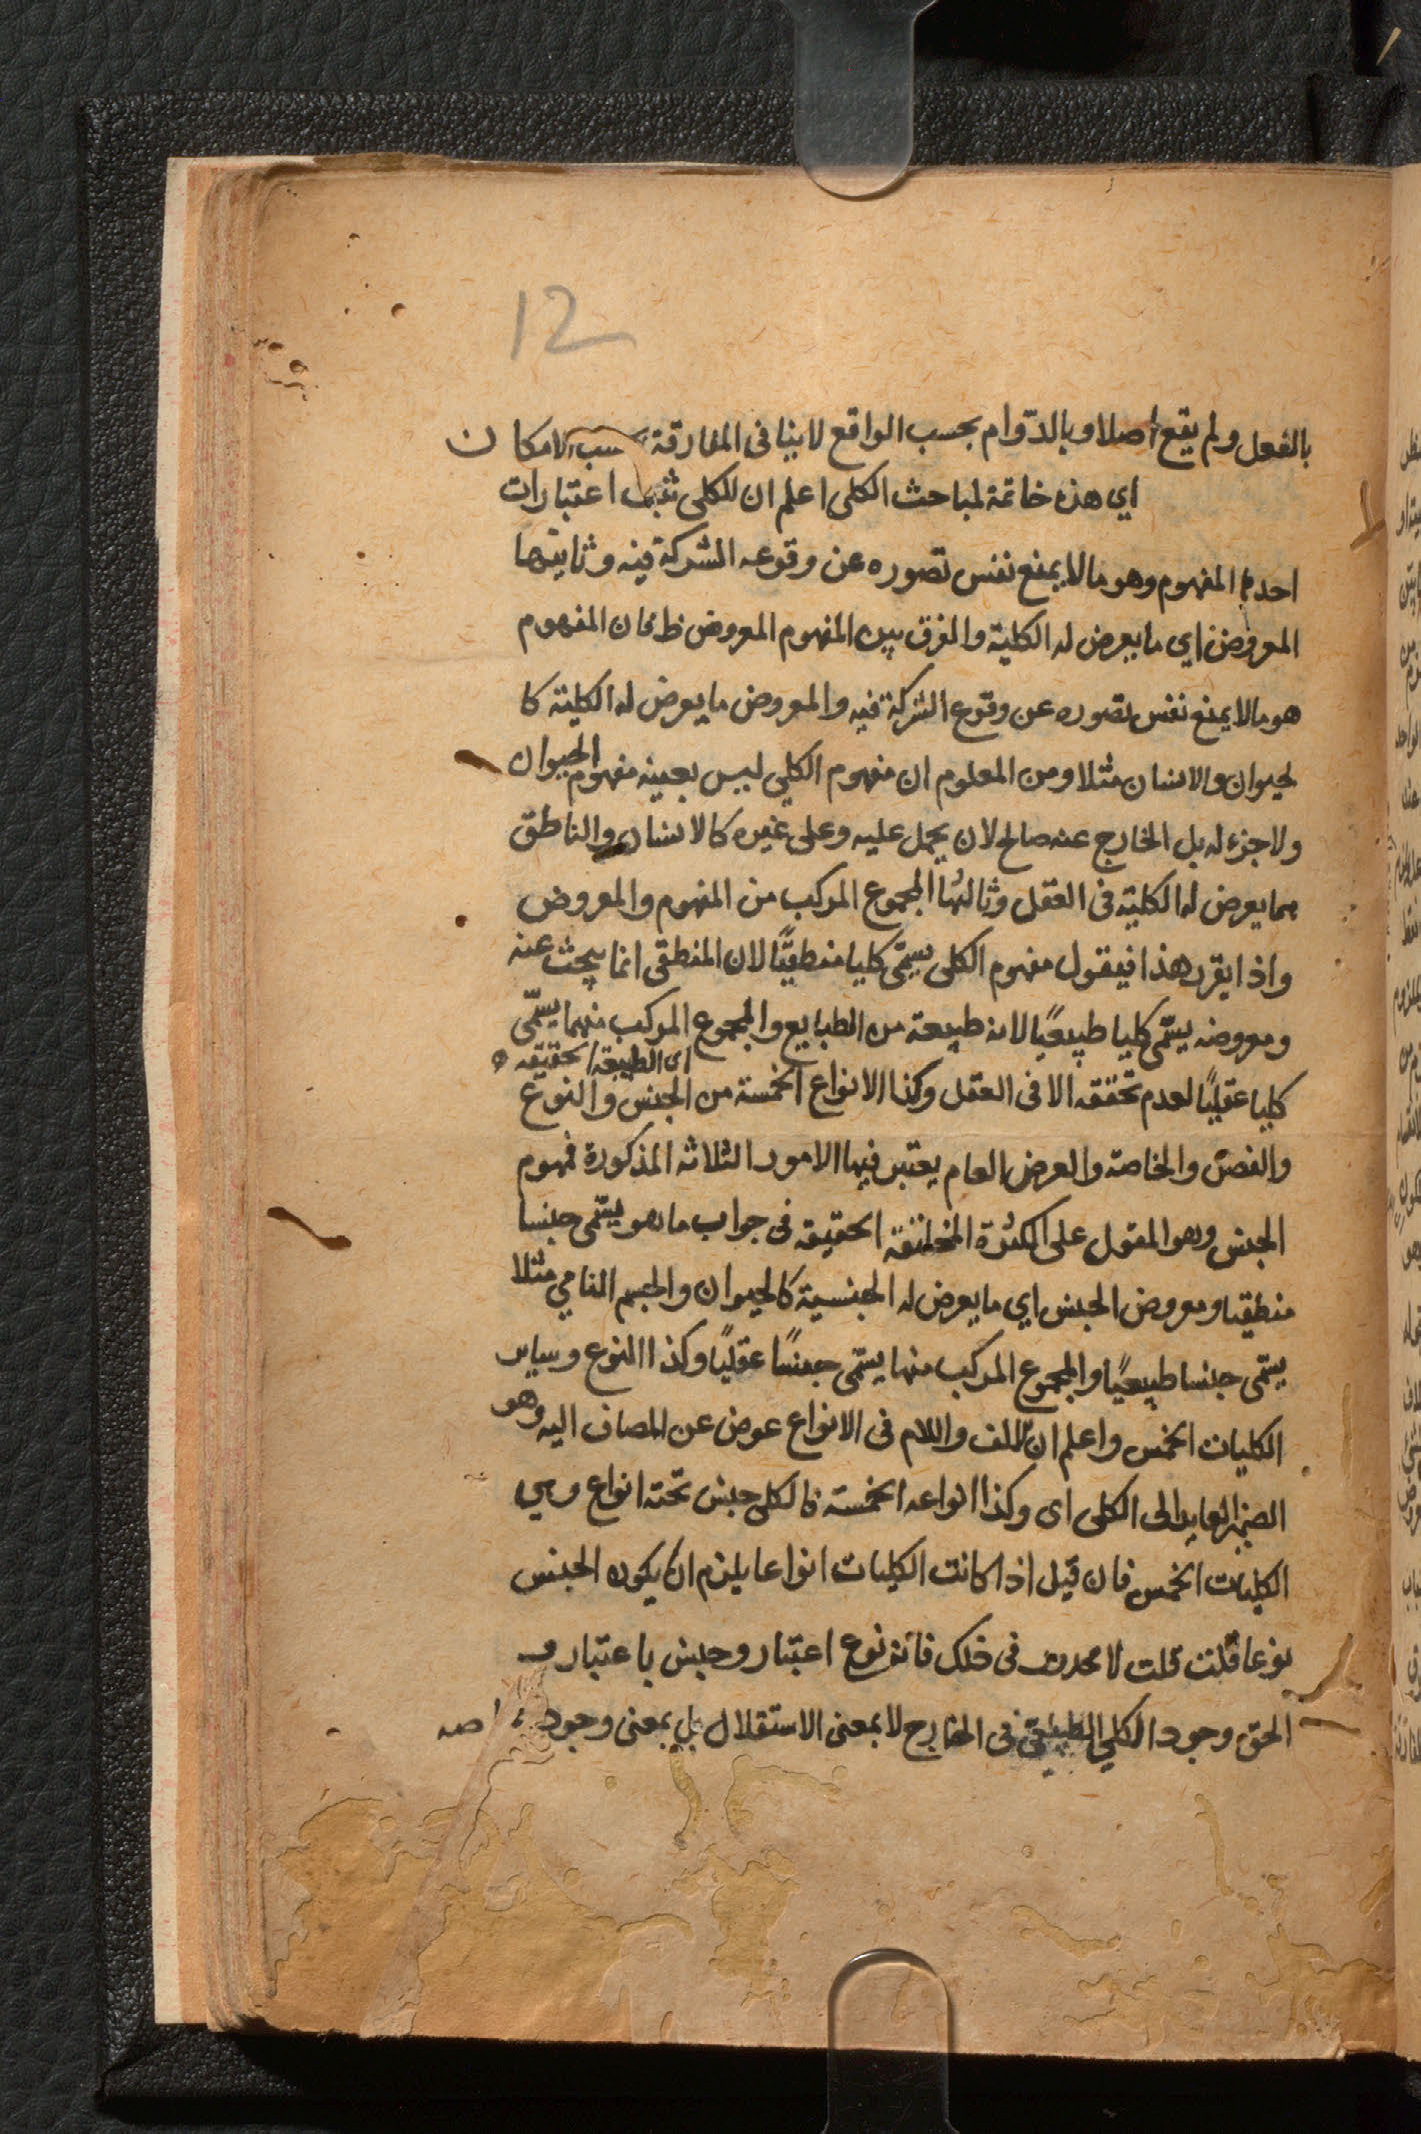 12
بالفعل ولم يقع اصلا و بالدّوام بحسب الواقع لا ينافى المفارقة بحسب الامكان
اي هذه خاتمة لمباحث الكلى اعلم ان للكلى ثلث اعتبارات
احدها المفهوم وهو ما لا يمنع نفس تصوره عن وقوعه الشركة فيه وثانيتها
المعروض اي ما يعرض له الكلية والفرق بين المفهوم المعروض ظ فان المفهوم
هو ما لا يمنع نفس تصوره عن وقوع الشركة فيه والمعروض ما يعرض له الكلية كا
لحيوان والانسان مثلا ومن المعلوم ان مفهوم الكلي ليس بعينه مفهوم الحيوان
ولا جزء له بل الخارج عنه صالح لان يحمل عليه وعلى غيره كالانسان والناطق
مما يعرض له الكلية فى العقل وثالثها المجموع المركب من المفهوم والمعروض
واذا يقرر هذا فيقول مفهوم الكلى يسمّى كليا منطقيًّا لان المنطقى انما يبحث عنه
ومعروضه يسمّى كليا طبيعيًا لانه طبيعة من الطبايع والمجموع المركب منهما يسمّى
اى الطبيعة الحقيقه
كليا عقليًا لعدم تحققه الا فى العقل وكذا الانواع الخمسة من الجنس والنوع
والفصل والخاصة والعرض العام يعتبر فيها الامور الثلاثه المذكورة فمهوم
الجنس وهو المقول على الكثرة المختلفة الحقيقه فى جواب ما هو يسمّى جنسا
منطقيا ومعروض الجنس اي ما يعرض له الجنسية كالحيوان والجسم النامي مثلا
يسمّى جنسا طبيعيًا والمجموع المركب منهما يسمّى جنسًا عقليًا وكذا النوع وساير
الكليات الخمس واعلم ان اللف واللام فى الانواع عوض عن المضاف اليه وهو
الضمير العايد الى الكلى اى وكذا انواعه الخمسة فالكلى جنس تحته انواع وهي
الكليات الخمس فان قيل اذا كانت الكليات انواعا يلزم ان يكون الجنس
نوعا قلت قلت لا محذور فى ذلك فانه نوع اعتبار وجنس باعتبار و
الحق وجود الكلي الطبيعى فى الخارج لا بمعنى الاستقلال بل بمعنى وجود